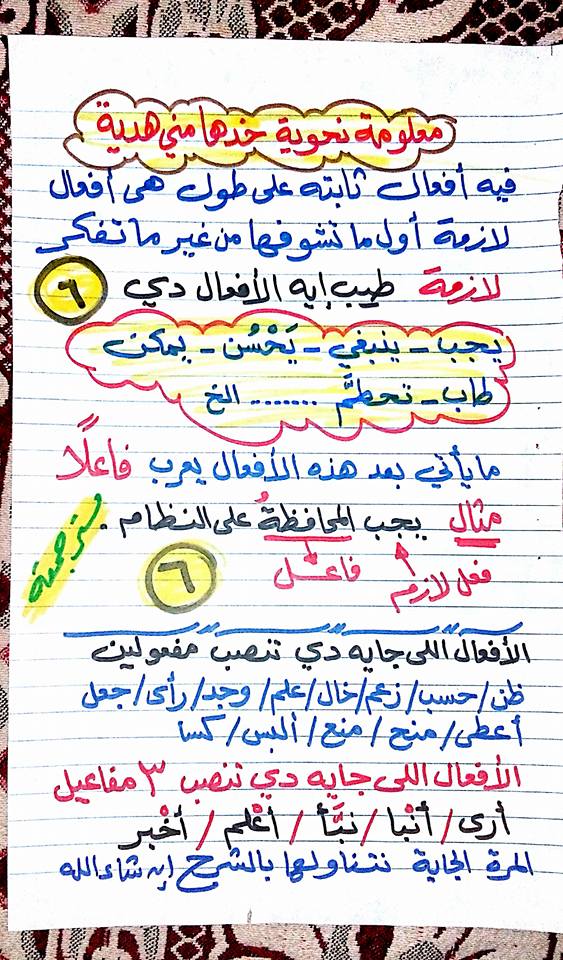 معلومة نحوية خدها مني هدية
فيه أفعال ثابته على طول هى أفعال
لازمة أول ما تشوفها من غير ما تفكر
لازمة طيب إيه الأفعال دي ٦
يجب - ينبغي - يَحْسُن - يمكن
طاب - تحطَّم ........ الخ
ما يأتي بعد هذه الأفعال يعرب فاعلًا
مثال يجب المحافظةُ على النظام .
فعل لازم فاعل ٦
مستر جمعة
الأفعال اللى جايه دي تنصب مفعولين
ظن / حسب / زعم / خال / علم / وجد / رأى / جعل
أعطى / منح / منع / ألبس / كسا
الأفعال اللى جايه دي تنصب ٣ مفاعيل
أرى / أنْبا / نبَّأ / أعْلم / أخْبر
المرة الجاية نتناولها بالشرح إن شاء الله